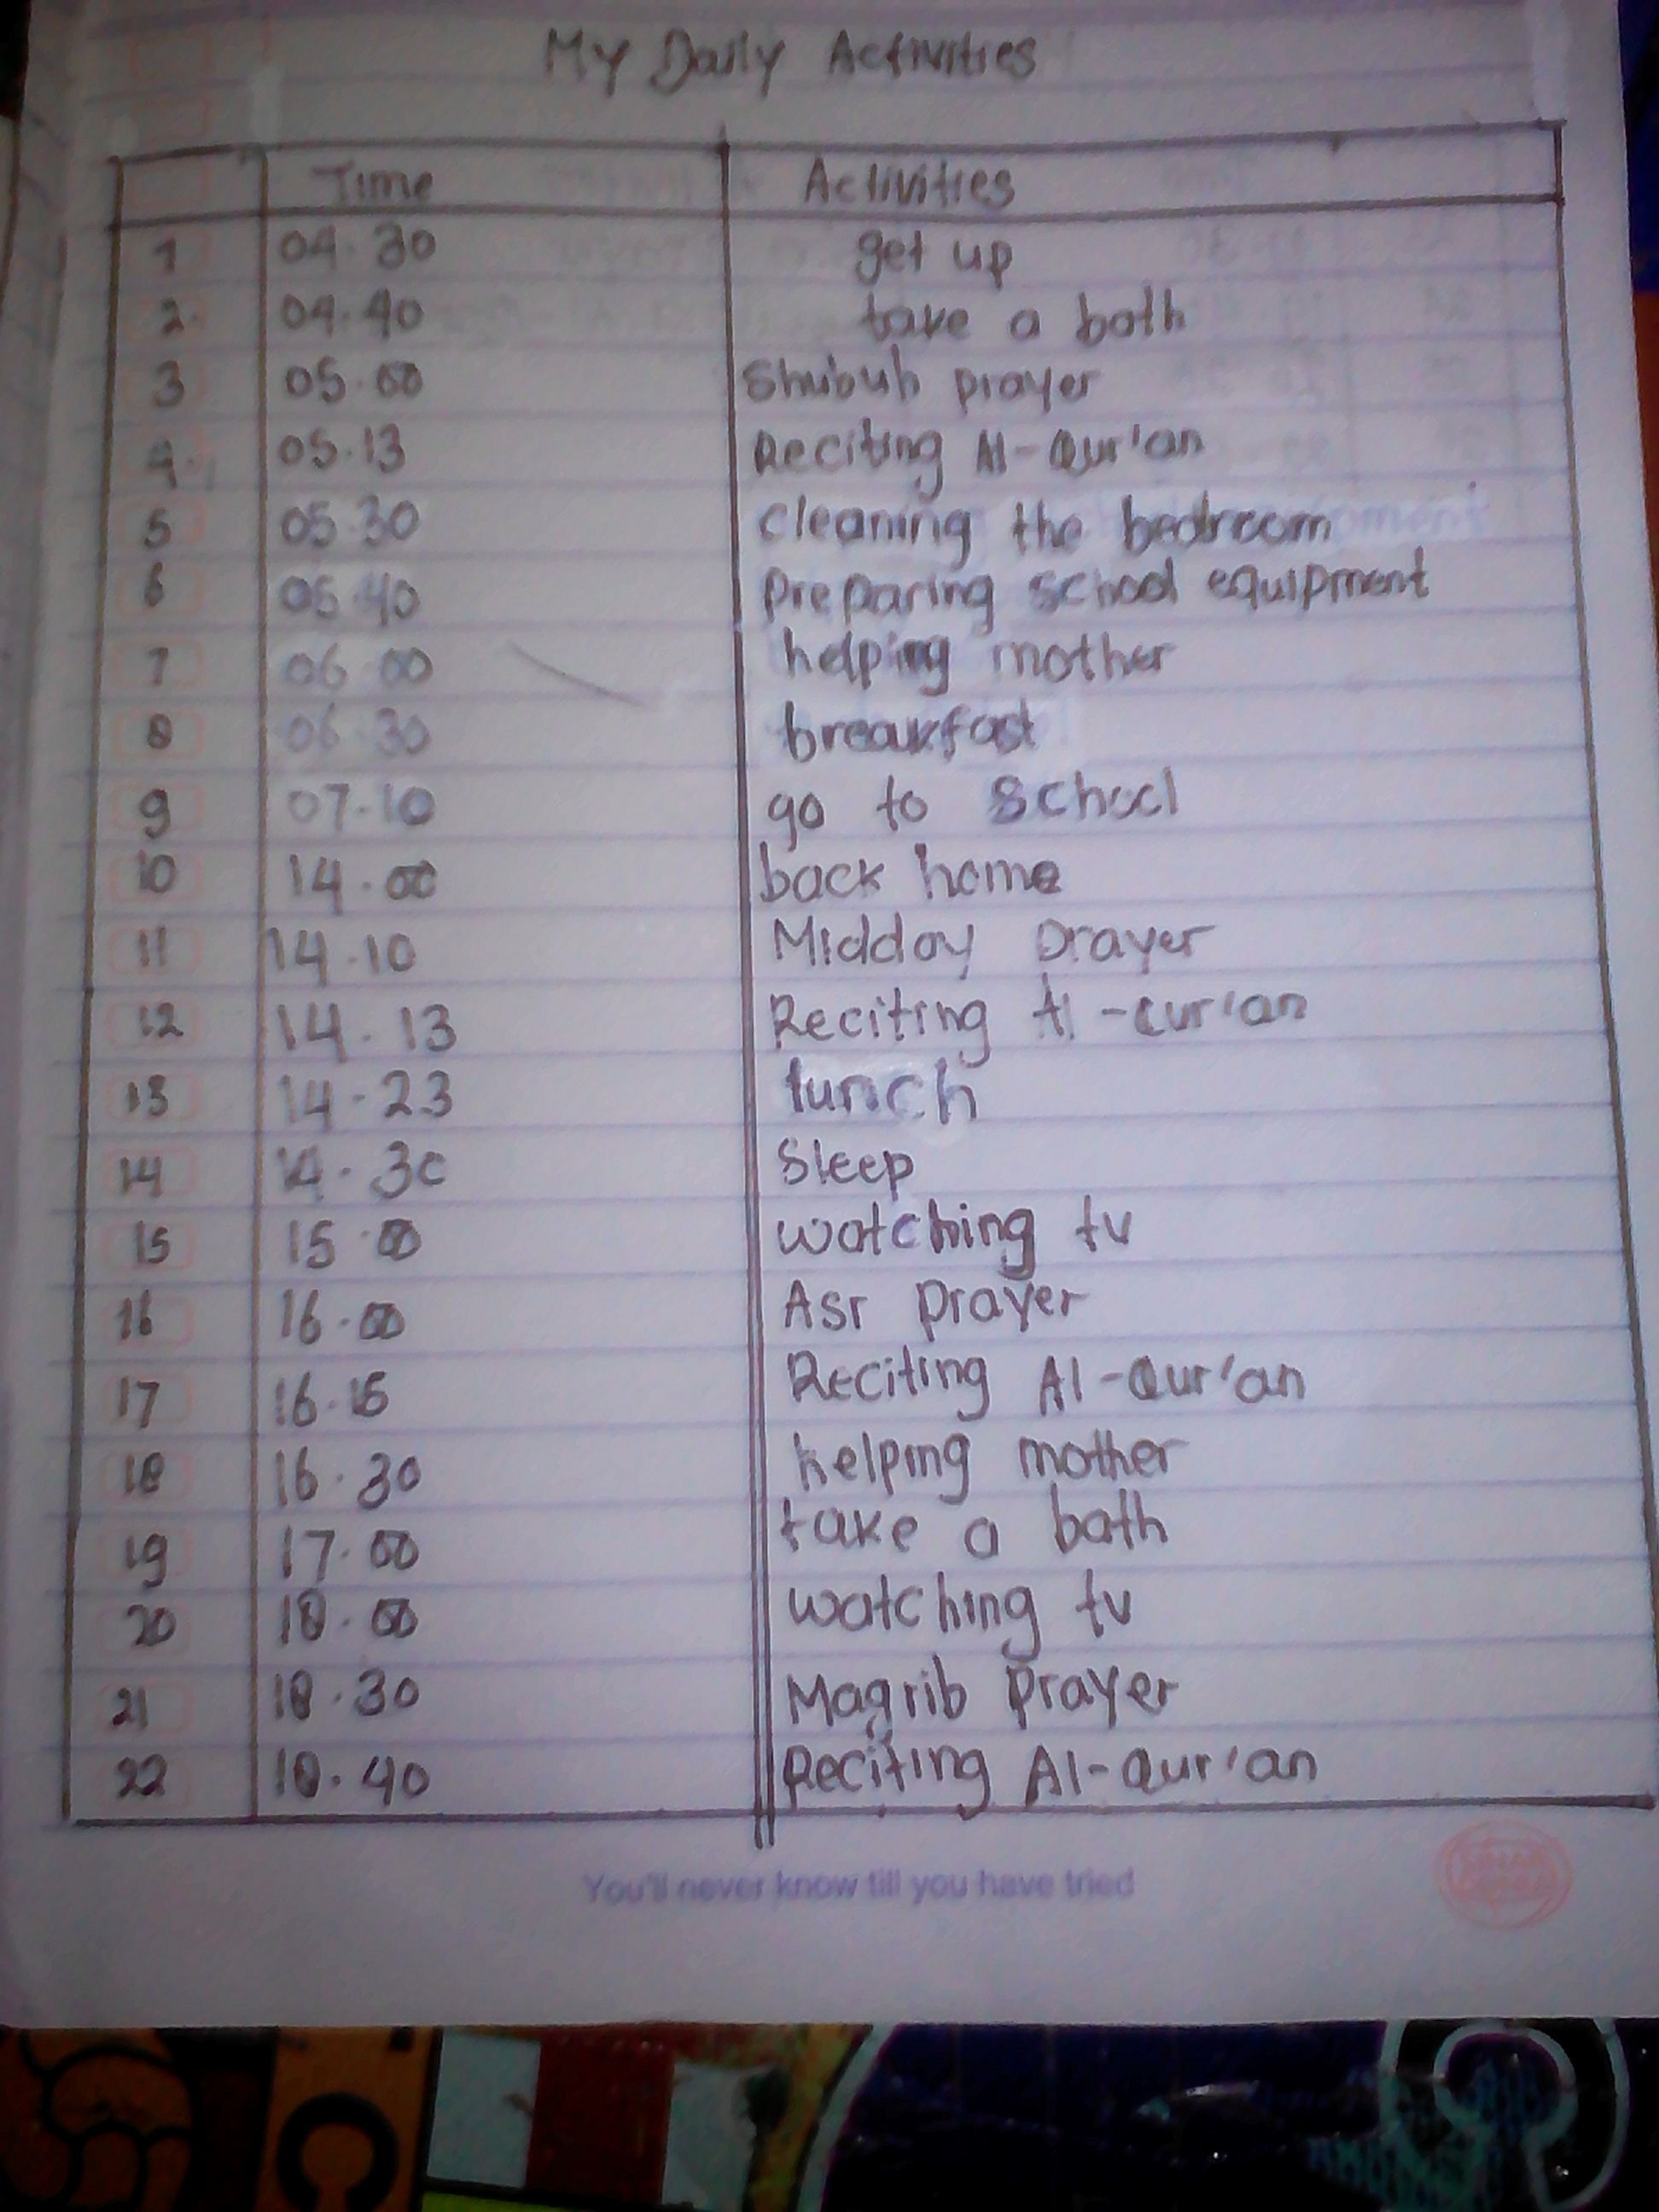 My Daily Activities
Time Activities
1 04.30 get up
2. 04.40 take a bath
3 05.00 Shubuh prayer
4. 05.13 Reciting Al-Qur'an
5 05.30 cleaning the bedroom
6 05.40 preparing school equipment
7 06.00 helping mother
8 06.30 breakfast
9 07.10 go to school
10 14.00 back home
11 14.10 Midday prayer
12 14.13 Reciting Al-Qur'an
13 14.23 lunch
14 14.30 Sleep
15 15.00 watching tv
16 16.00 Asr prayer
17 16.15 Reciting Al-Qur'an
18 16.30 helping mother
19 17.00 take a bath
20 18.00 watching tv
21 18.30 Magrib prayer
22 18.40 Reciting Al-Qur'an
You'll never know till you have tried